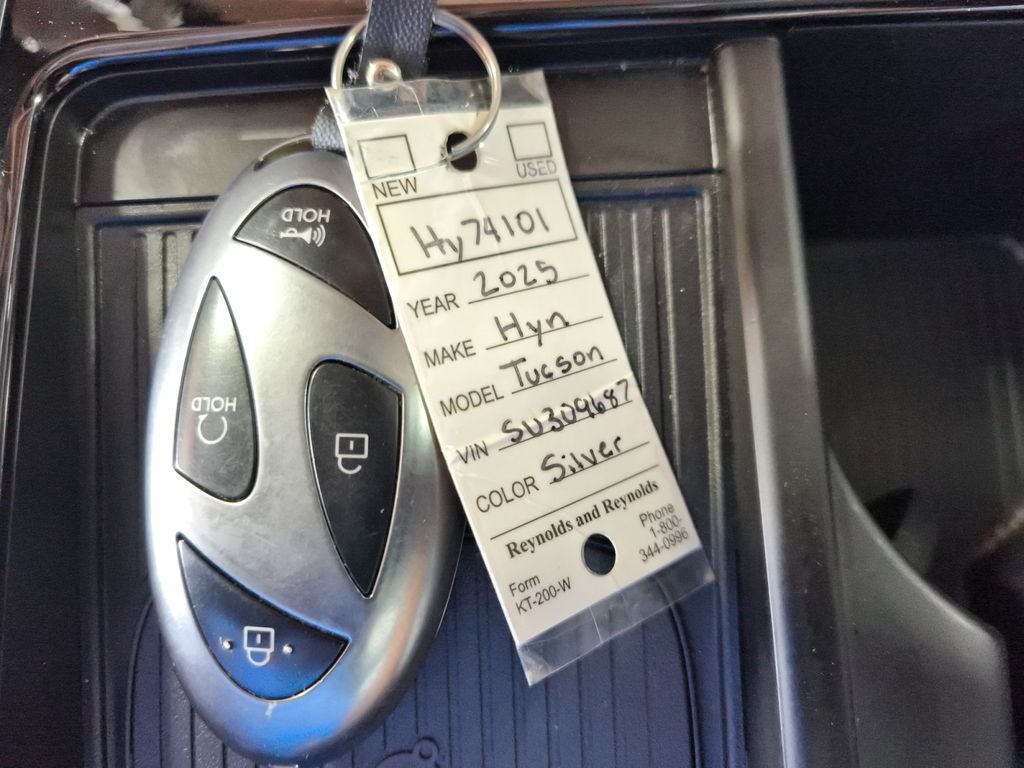 NEW USED
Hy74101
YEAR 2025
MAKE Hyn
MODEL Tucson
VIN SU309687
COLOR Silver
Reynolds and Reynolds
Form
KT-200-W
Phone
1-800-
344-0996
HOLD
HOLD